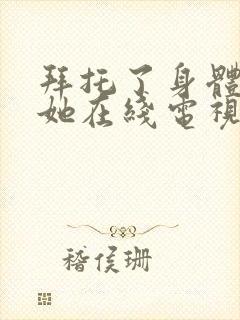 拜托了身體
她在綫電視
稽侯珊